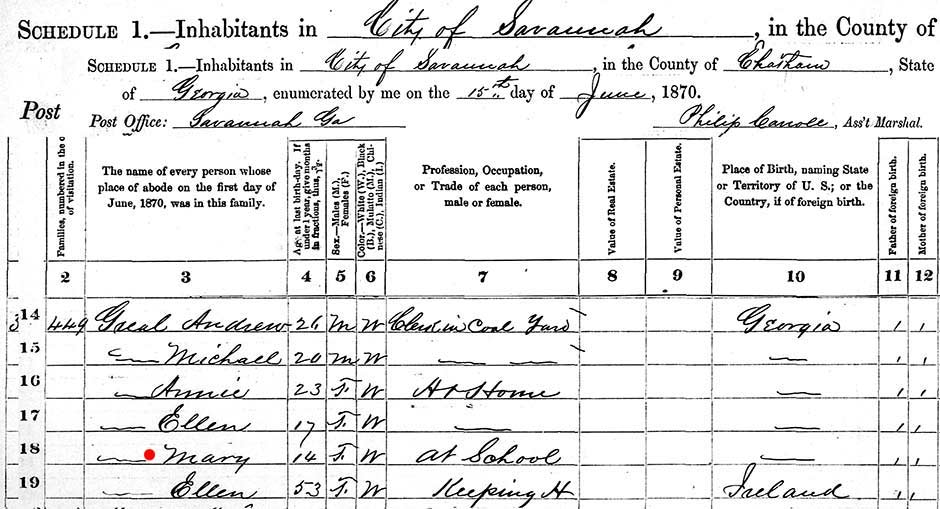 SCHEDULE 1.—Inhabitants in City of Savannah, in the County of
SCHEDULE 1.—Inhabitants in City of Savannah, in the County of Chatham, State
of Georgia, enumerated by me on the 15th day of June, 1870.
Post
Post Office: Savannah Ga
Philip Canole, Ass't Marshal.
Families, numbered in the o
of visitation.
The name of every person whose
place of abode on the first day of
June, 1870, was in this family.
Age at last birth-day. If
under 1 year, give months
in fractions, thus, 3/12.
Sex.—Males (M.),
Females (F.)
Color.—White (W.), Black
(B.), Mulatto (M.), Chi-
nese (C.), Indian (I.)
Profession, Occupation,
or Trade of each person,
male or female.
Value of Real Estate.
Value of Personal Estate.
Place of Birth, naming State
or Territory of U. S.; or the
Country, if of foreign birth.
Father of foreign birth.
Mother of foreign birth.
2 3 4 5 6 7 8 9 10 11 12
14 449 Greal Andrew 26 M W Clerk in Coal Yard Georgia / /
15 — Michael 20 M W — — — / /
16 — Annie 23 F. W At Home — / /
17 — Ellen 17 F. W — — / /
18 — Mary 14 F. W at School — / /
19 — Ellen 53 F. W Keeping H Ireland / /